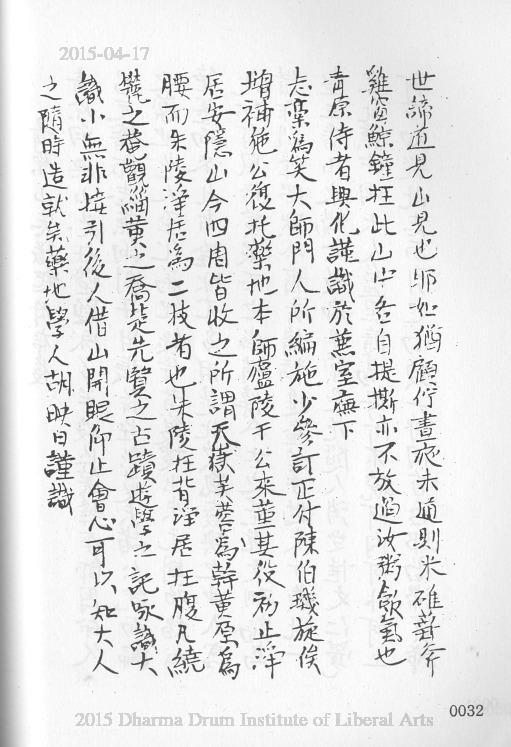 2015-04-17
世諦道見山見也邪如猶顧佇晝夜未通則米碓薪斧
雞窗鯨鐘在此山中各自提撕亦不放過汝粥飲氣也
青原侍者興化謹識於蕉室廡下
志稾為笑大師門人所編施少參訂正付陳伯璣旋俟
增補施公復托藥地本師廬陵于公來董其役初止淨
居安隱山今四周皆收之所謂天嶽芙蓉為幹黃原為
腰而朱陵淨居為二枝者也朱陵在背淨居在腹凡繞
之菴觀緇黃之喬先賢之古蹟遊學之記咏識大
識小無非接引後人借山開眼仰止會心可以知大人
之隨時造就矣藥地學人胡映日謹識
0032
2015 Dharma Drum Institute of Liberal Arts